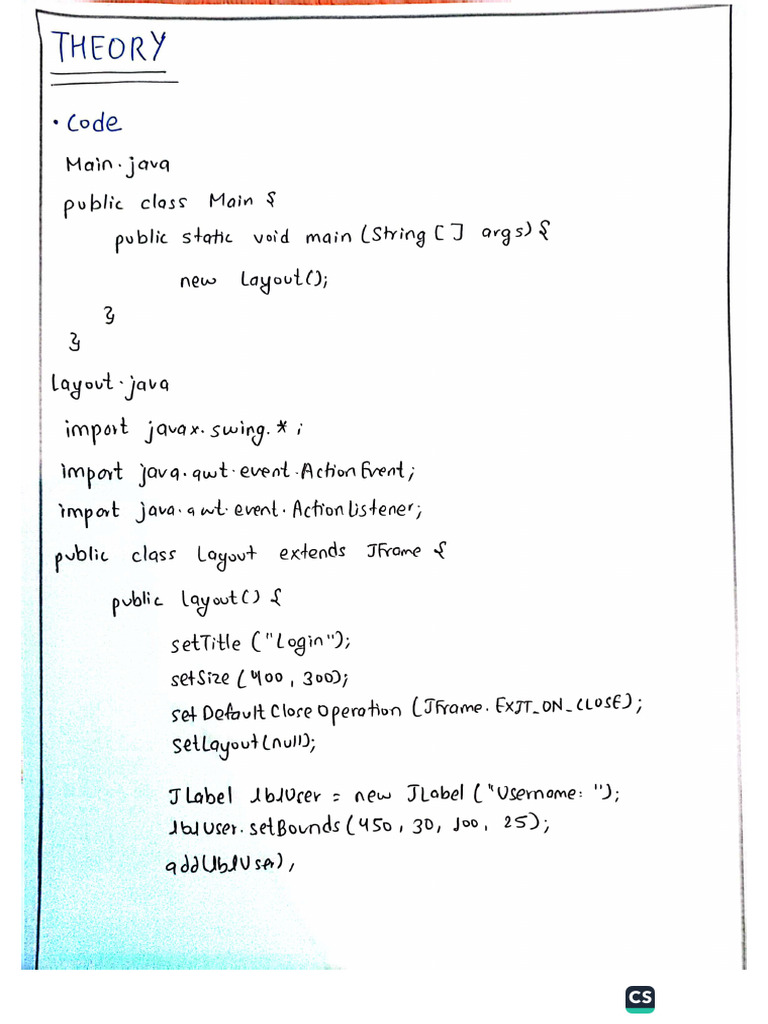 THEORY
• Code
Main.java
public class Main {
public static void main (String [] args) {
new Layout();
}
}
Layout.java
import javax.swing.*;
import java.awt.event.ActionEvent;
import java.awt.event.ActionListener;
public class Layout extends JFrame {
public Layout() {
setTitle ("Login");
setSize (400, 300);
setDefaultCloseOperation (JFrame.EXIT_ON_CLOSE);
setLayout(null);
JLabel lblUser = new JLabel ("Username: ");
lblUser.setBounds (450, 30, 100, 25);
add(lblUser);
CS